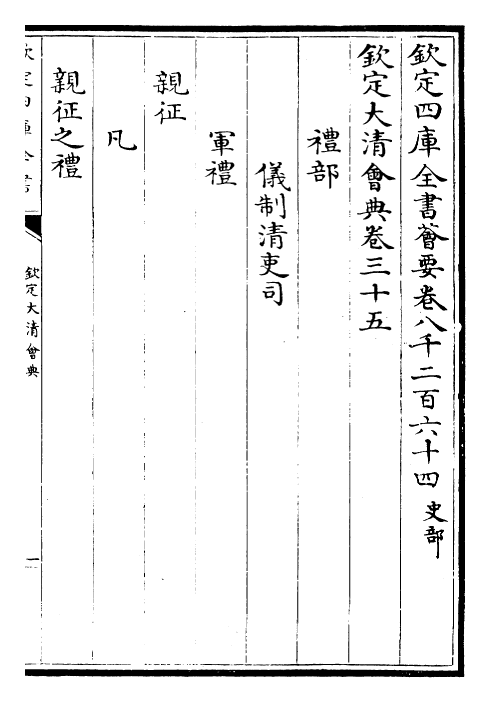 欽定四庫全書薈要卷八千二百六十四 史部
欽定大清會典卷三十五
禮部
儀制清吏司
軍禮
親征
凡
親征之禮
欽定四庫全書
欽定大清會典
一